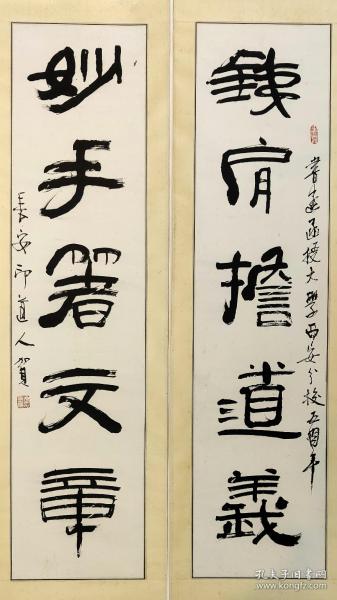 書畫函授大學西安分校五周年
銕肩擔道義
妙手著文章
長安印道人賀
孔夫子旧书网
www.kongfz.com